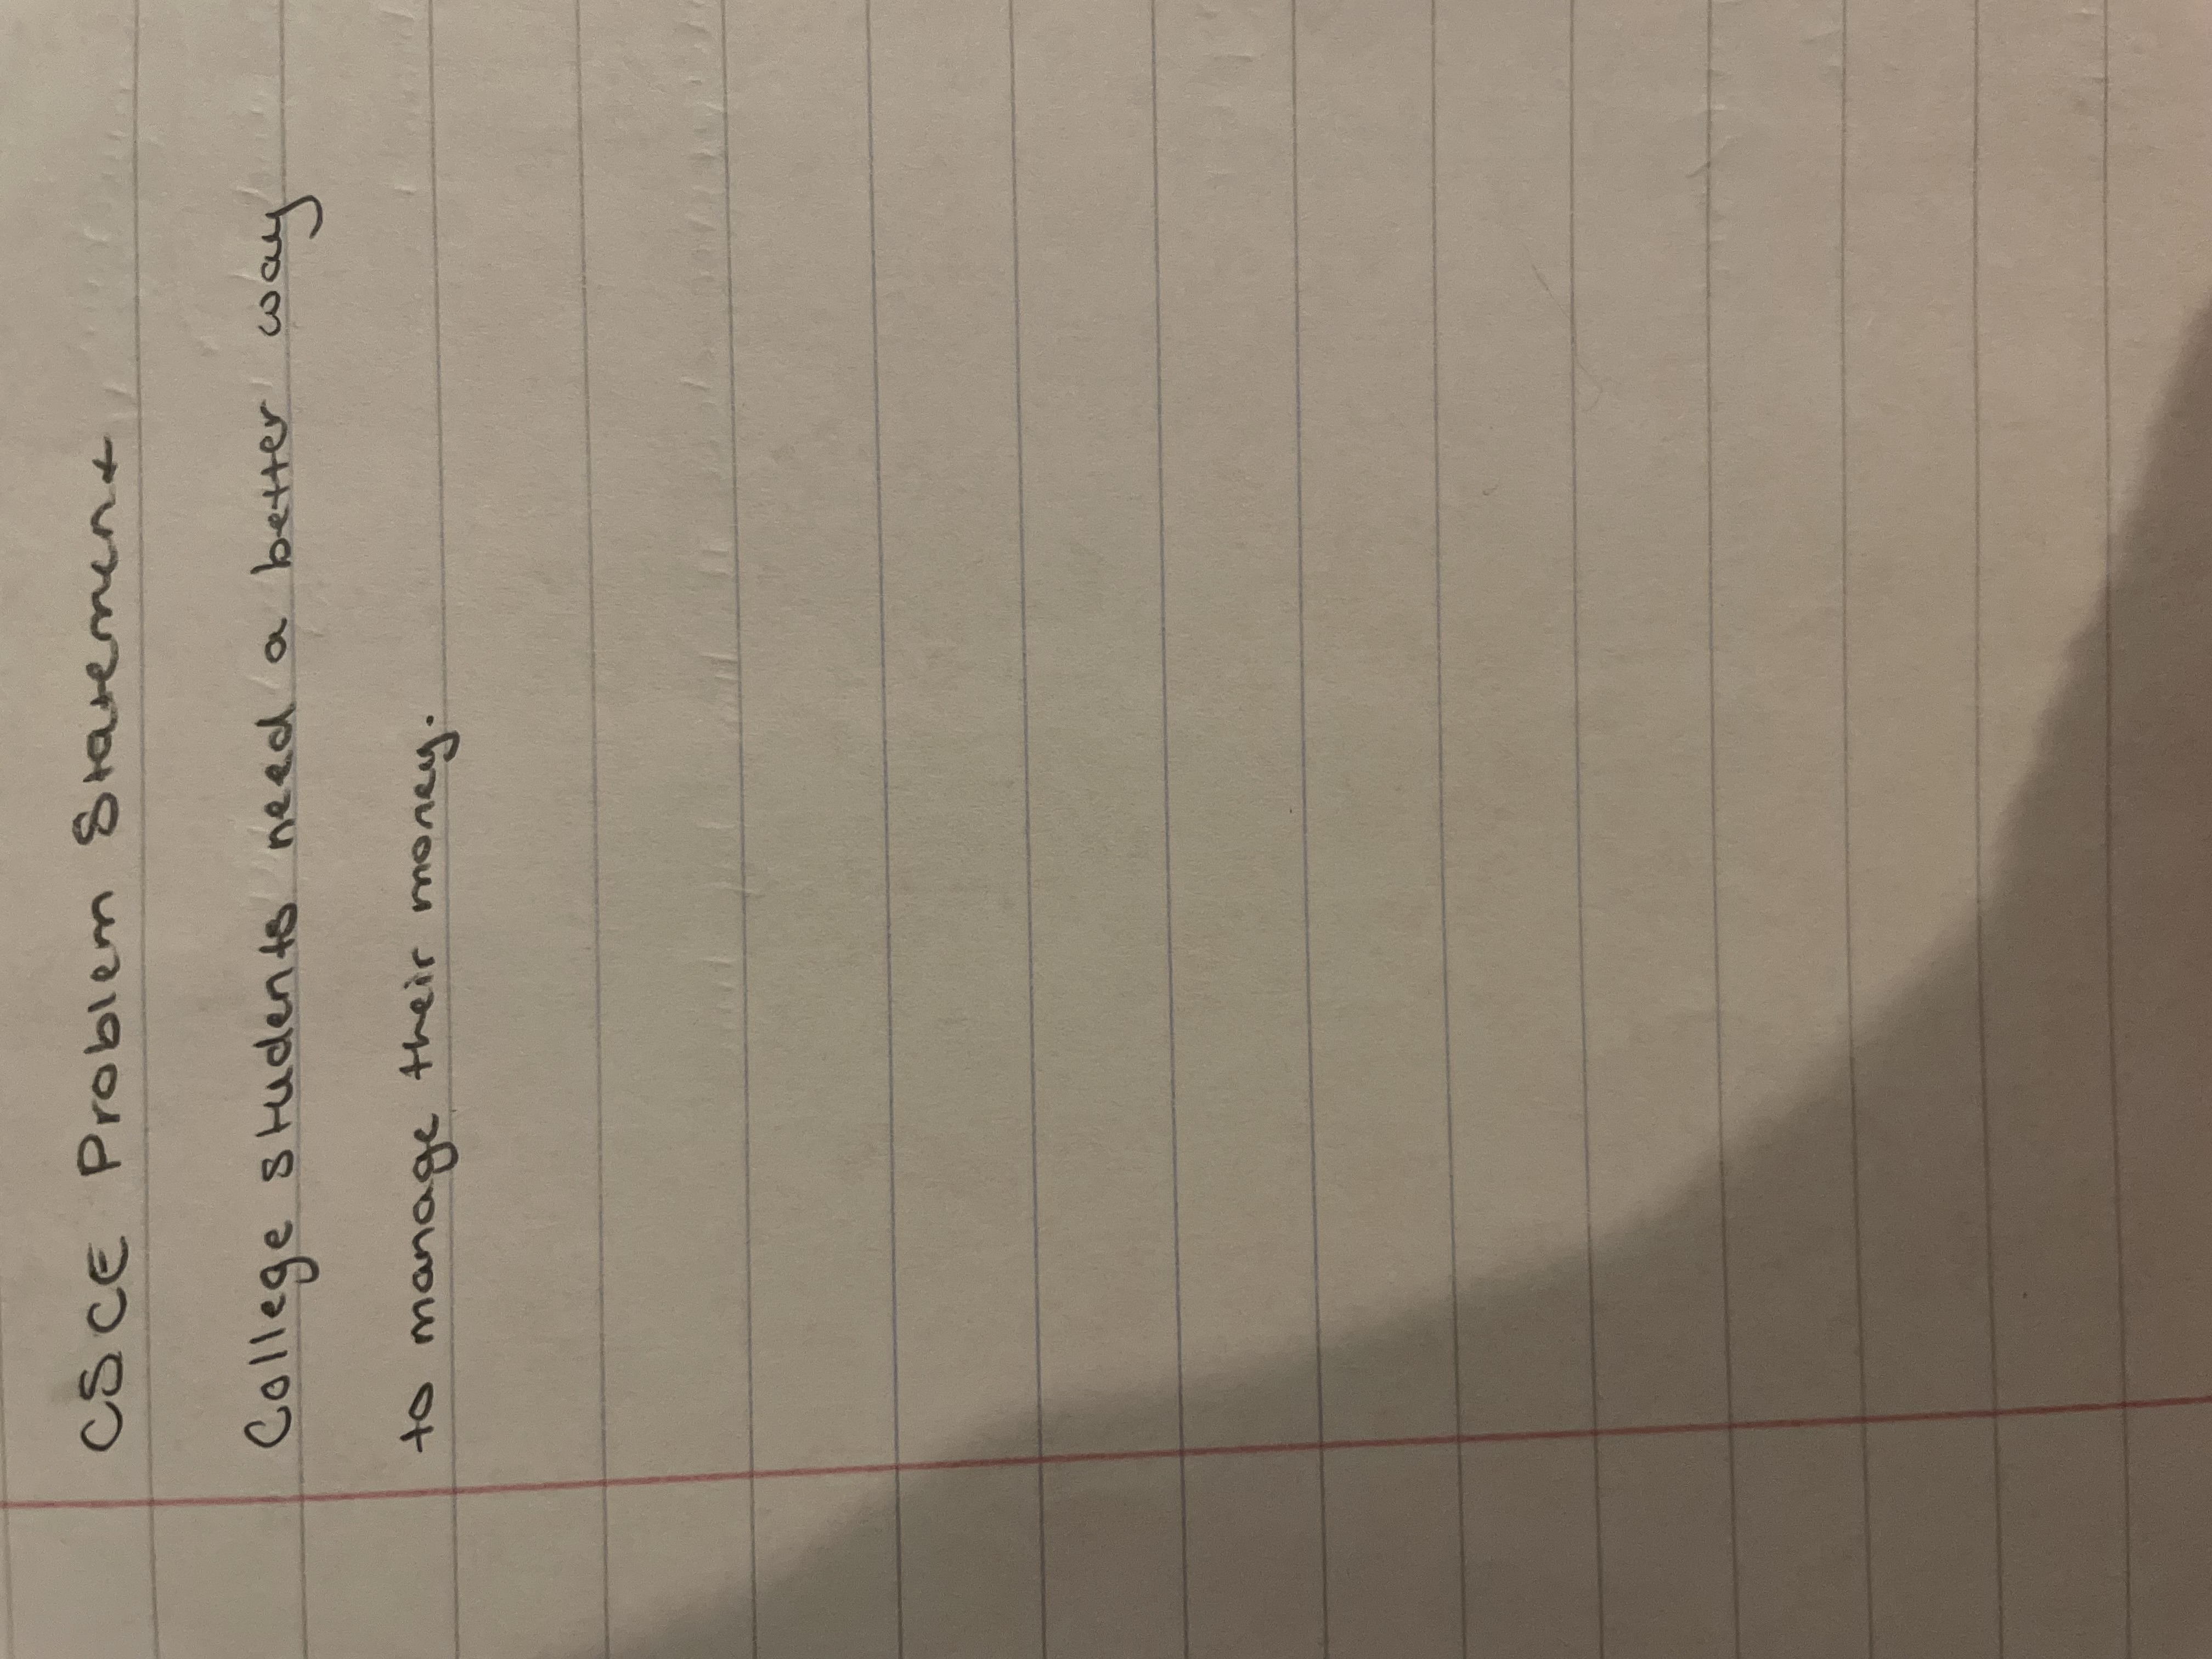 CSCE Problem Statement
College students need a better way
to manage their money.